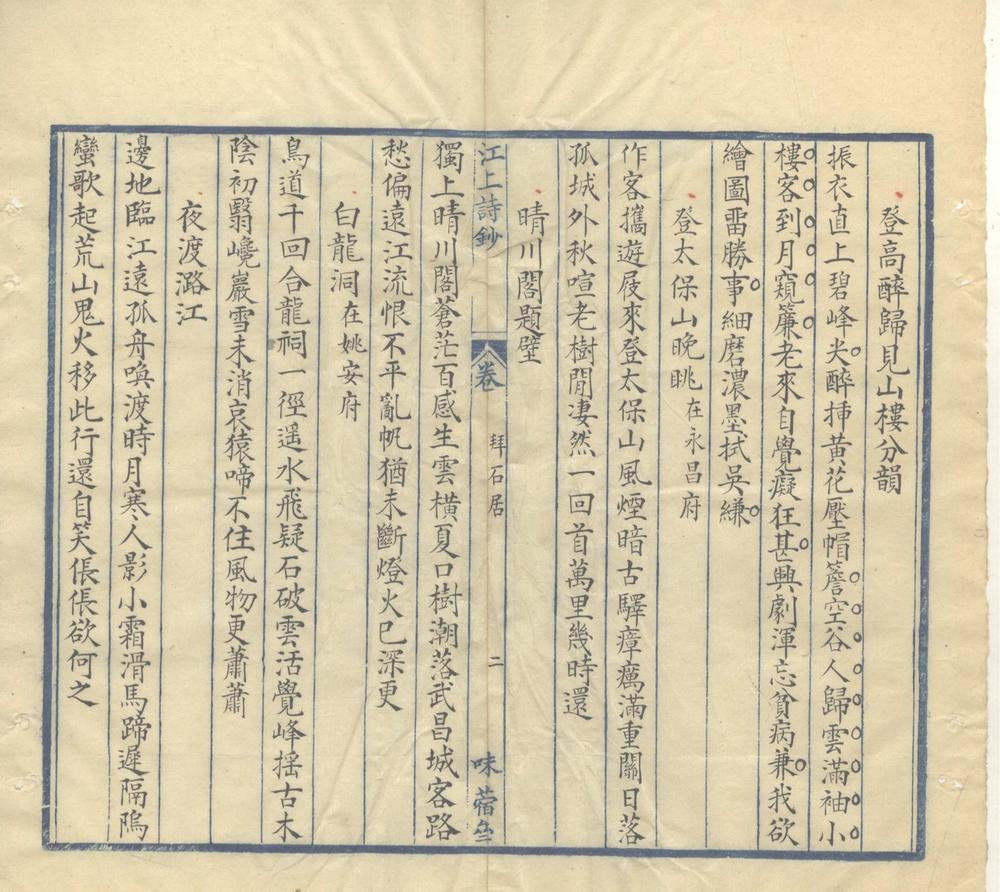 登高醉歸見山樓分韻
振衣直上碧峰尖醉揷黃花壓帽簷空谷人歸雲滿袖小
樓客到月窺簾老來自覺癡狂甚興劇渾忘貧病兼我欲
繪圖畱勝事細磨濃墨拭吳縑
登太保山晚眺在永昌府
作客攜遊屐來登太保山風煙暗古驛瘴癘滿重關日落
孤城外秋喧老樹閒凄然一回首萬里幾時還
晴川閣題壁
江上詩鈔
卷
拜石居
二
味蓿盦
獨上晴川閣蒼茫百感生雲橫夏口樹潮落武昌城客路
愁偏遠江流恨不平亂帆猶未斷燈火巳深更
白龍洞在姚安府
鳥道千回合龍祠一徑遥水飛疑石破雲活覺峰揺古木
陰初翳巉巖雪未消哀猿啼不住風物更蕭蕭
夜渡潞江
邊地臨江遠孤舟喚渡時月寒人影小霜滑馬蹄遲隔隖
蠻歌起荒山鬼火移此行還自笑倀倀欲何之